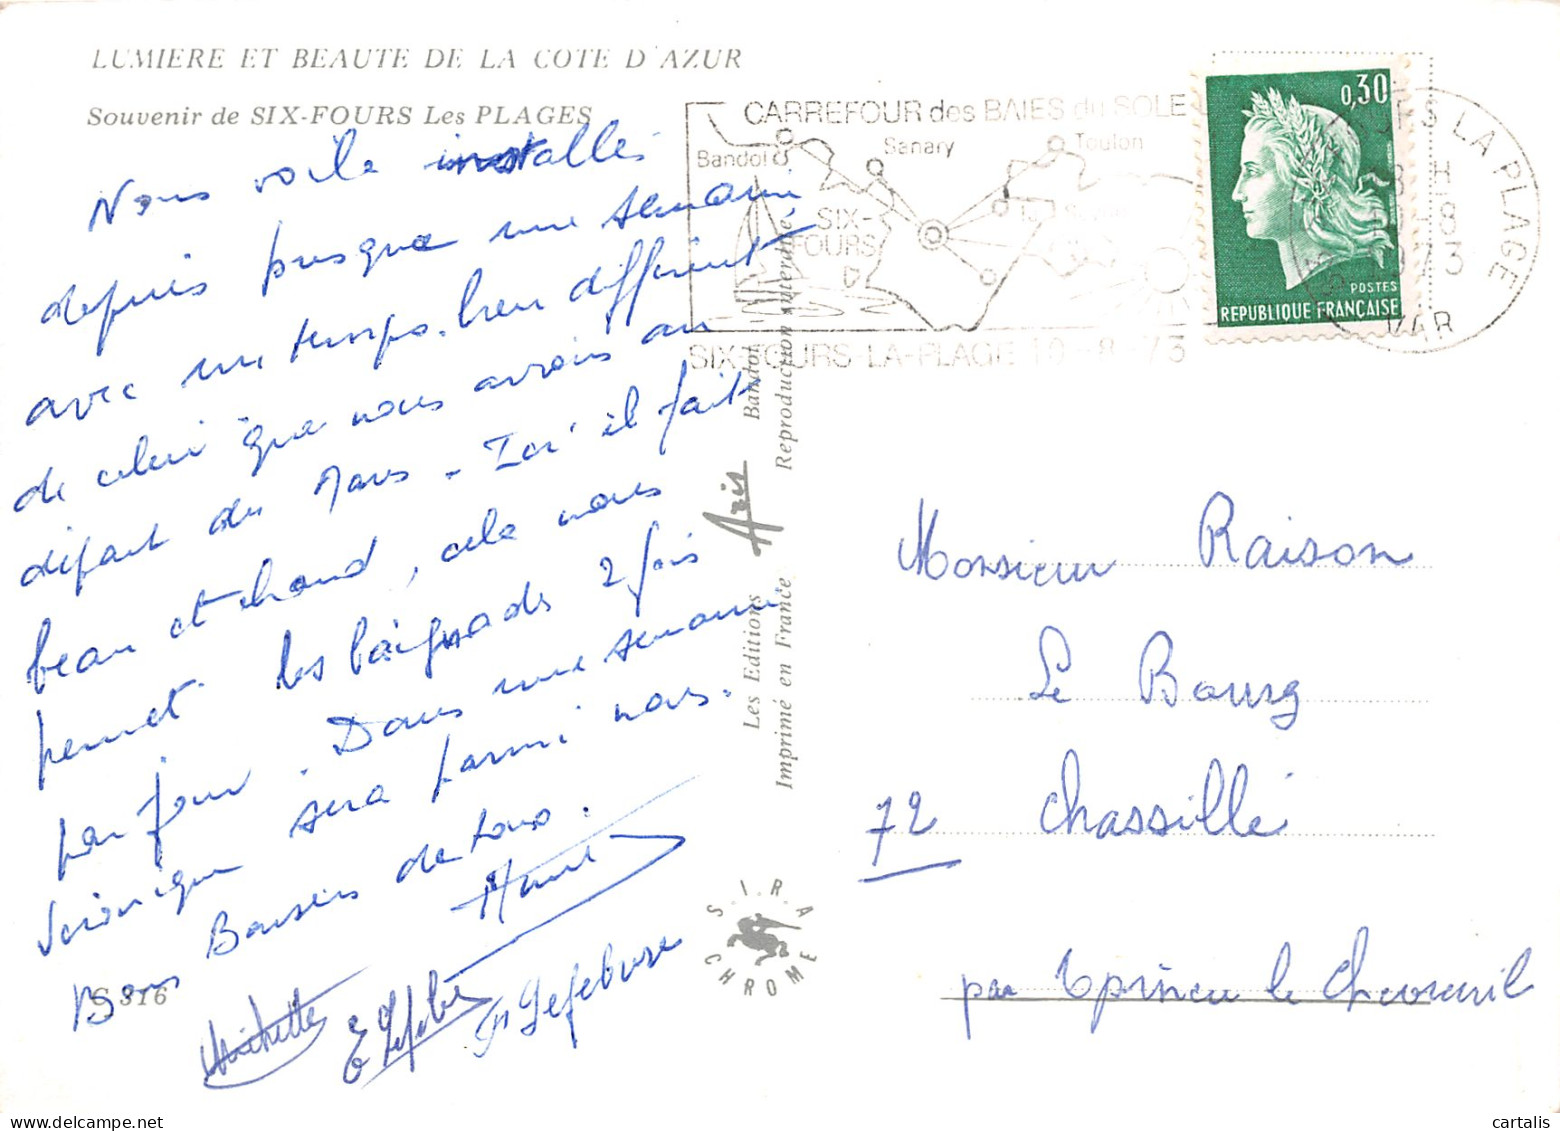 LUMIERE ET BEAUTE DE LA COTE D'AZUR
Souvenir de SIX-FOURS Les PLAGES
Nous voila installés
depuis presque une semaine
avec un temps bien différent
de celui que nous avions au
départ du Mans - Ici il fait
beau et chaud, cela nous
permet les baignades 2 fois
par jour. Dans une semaine
Véronique sera parmi nous.
Bons Baisers de tous.
Michette
E Lefebvre
Lefebvre
S 316
CARREFOUR des BAIES du SOLE
Bandol
Sanary
Toulon
SIX-
FOURS
La Seyne
SIX-FOURS-LA-PLAGE 10-8-73
0,30
POSTES
REPUBLIQUE FRANÇAISE
FOURS LA PLAGE
18 H
10-8
1973
VAR
Les Editions Aris Bandol
Imprimé en France Reproduction interdite
S.I.R.A
CHROME
Monsieur Raison
Le Bourg
72 Chassillé
par Epineu le Chevreuil
cartalis